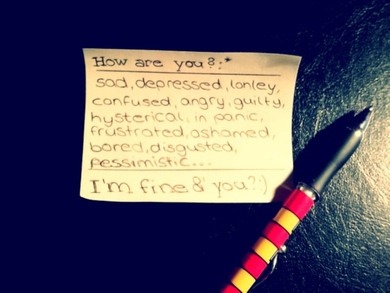 How are you?:*
sad, depressed, lonley,
confused, angry, guilty,
hysterical, in panic,
frustrated, ashamed,
bored, disgusted,
pessimistic...
I'm fine & you?:)